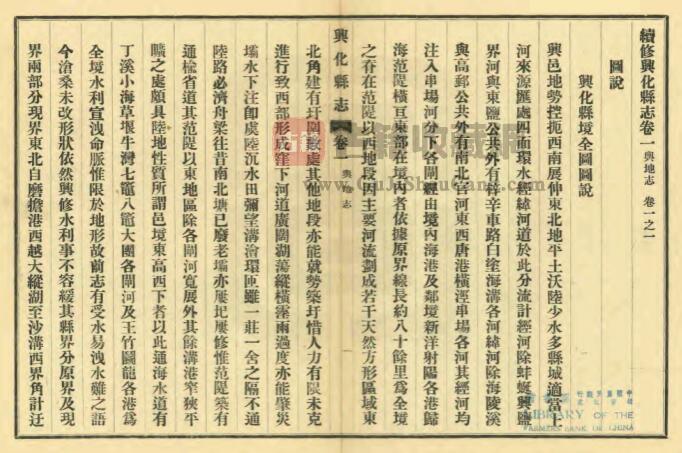 續修興化縣志卷一 輿地志 卷一之一
圖說
興化縣境全圖圖說
興邑地勢控扼西南展伸東北地平土沃陸少水多縣城適當上
河來源匯處四面環水經緯河道於此分流計經河除蚌蜒興鹽
界河與東鹽公共外有梓辛車路白塗海溝各河緯河除海陵溪
與高郵公共外有南北官河東西唐港橫涇串場各河其經河均
注入串場河分下各閘經由境內海港及鄰境新洋射陽各港歸
海范隄橫亙東部在境內者依據原界線長約八十餘里爲全境
之脊在范隄以西地段因主要河流劃成若干天然方形區域東
興化縣志 卷一 輿地志
北角建有圩圍數處其他地段亦能就勢築圩惜人力有限未克
進行致西部形成窪下河道廣闊湖蕩縱橫霪雨過度亦能肇災
壩水下注卽虞陸沉水田彌望溝澮環匝雖一莊一舍之隔不通
陸路必濟舟梁往昔南北塘已廢老壩亦屢圮屢修惟范隄築有
通楡省道其范隄以東地區除各閘河寬展外其餘溝港窄狹平
曠之處頗具陸地性質所謂邑境東高西下者以此通海水道有
丁溪小海草堰牛灣七竈八竈大團各閘河及王竹圖龍各港爲
全境水利宣洩命脈惟限於地形故前志有受水易洩水難之語
今滄桑未改形狀依然興修水利事不容緩其縣界分原界及現
界兩部分現界東北自磨擔港西越大縱湖至沙溝西界角計迂
古籍收藏網
www.GuJiShuCang.com
LIBRARY OF THE
FARMERS BANK OF CHINA